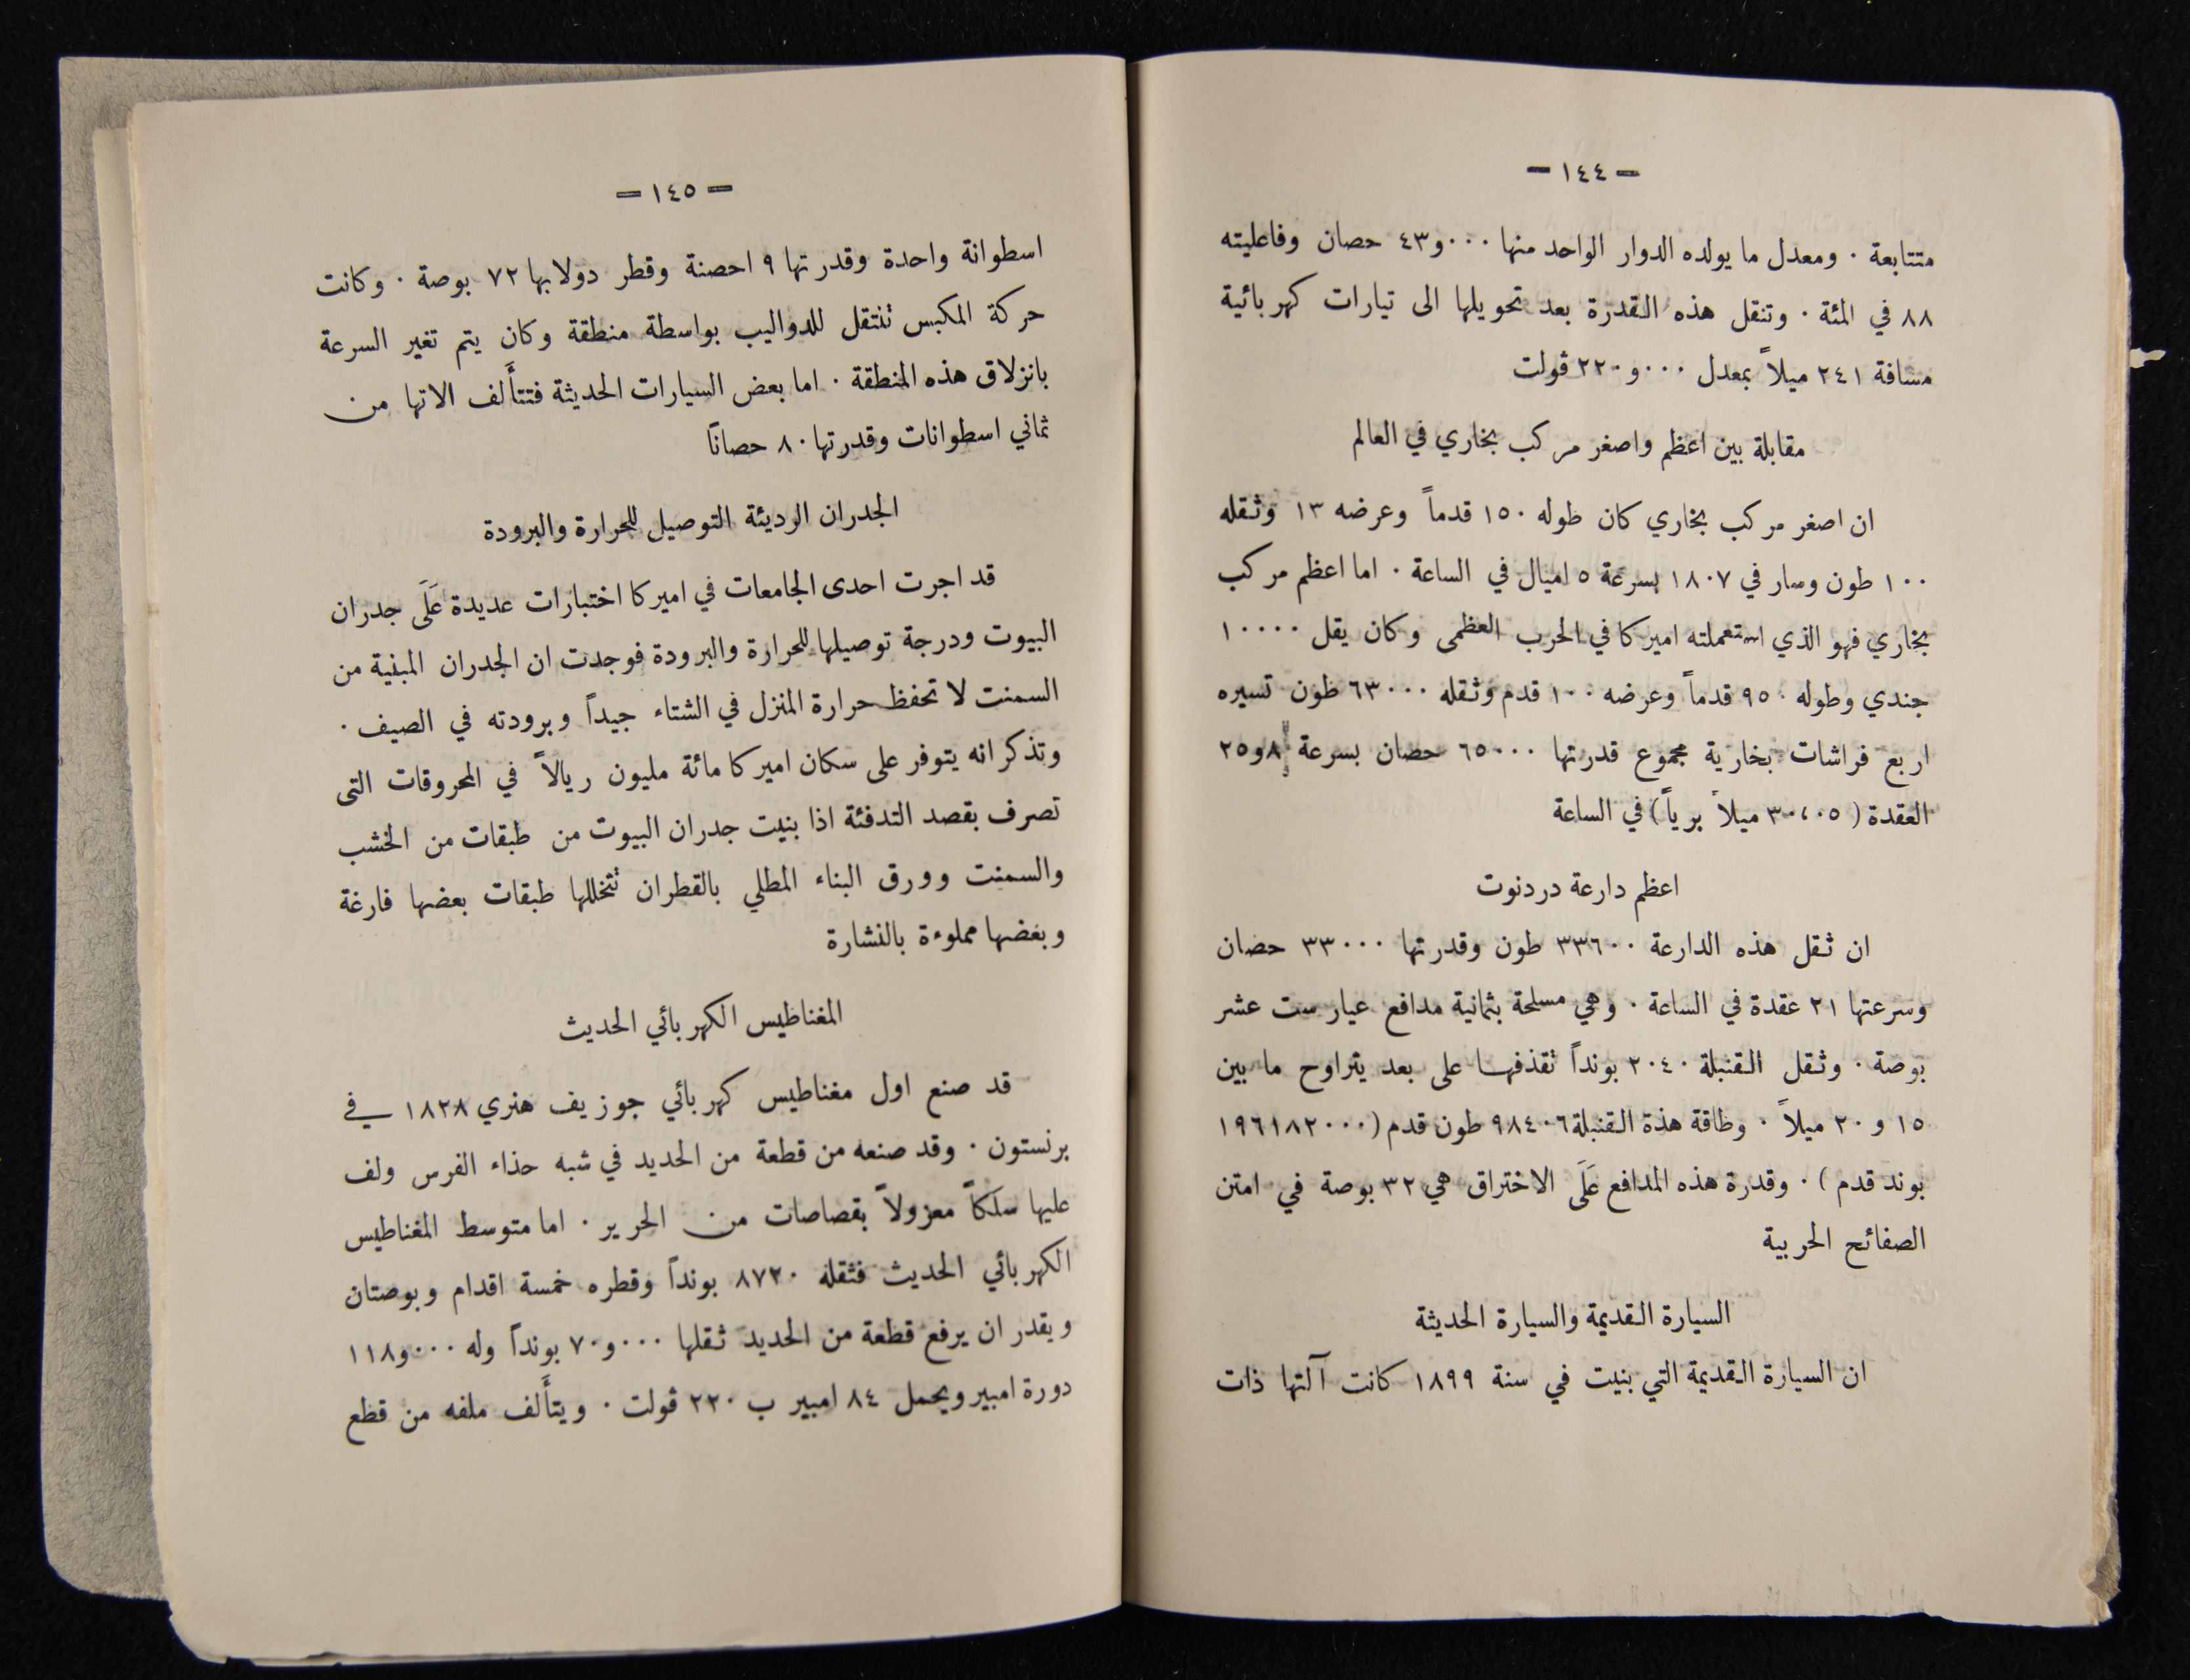 — ١٤٤ —
متتابعة ٠ ومعدل ما يولده الدوار الواحد منها ٤٣و٠٠٠ حصان وفاعليته
٨٨ في المئة ٠ وتنقل هذه القدرة بعد تحويلها الى تيارات كهربائية
مسافة ٢٤١ ميلاً بمعدل ٢٢٠و٠٠٠ ڤولت
مقابلة بين اعظم واصغر مركب بخاري في العالم
ان اصغر مركب بخاري كان طوله ١٥٠ قدماً وعرضه ١٣ وثقله
١٠٠ طون وسار في ١٨٠٧ بسرعة ٥ اميال في الساعة ٠ اما اعظم مركب
بخاري فهو الذي استعملته اميركا في الحرب العظمى وكان يقل ١٠٠٠٠
جندي وطوله ٩٥٠ قدماً وعرضه ١٠٠ قدم وثقله ٦٣٠٠٠ طون تسيره
اربع فراشات بخارية مجموع قدرتها ٦٥٠٠٠ حصان بسرعة ٢٥و٨
العقدة (٣٠،٠٥ ميلاً برياً) في الساعة
اعظم دارعة دردنوت
ان ثقل هذه الدارعة ٣٣٦٠٠ طون وقدرتها ٣٣٠٠٠ حصان
وسرعتها ٢١ عقدة في الساعة ٠ وهي مسلحة بثمانية مدافع عيار ست عشر
بوصة ٠ وثقل القنبلة ٢٠٤٠ بونداً تقذفها على بعد يتراوح ما بين
١٥ و ٢٠ ميلاً ٠ وطاقة هذة القنبلة ٩٨٤٠٦ طون قدم (١٩٦١٨٢٠٠٠
بوند قدم) ٠ وقدرة هذه المدافع عَلَى الاختراق هي ٣٢ بوصة في امتن
الصفائح الحربية
السيارة القديمة والسيارة الحديثة
ان السيارة القديمة التي بنيت في سنة ١٨٩٩ كانت آلتها ذات
— ١٤٥ —
اسطوانة واحدة وقدرتها ٩ احصنة وقطر دولابها ٧٢ بوصة ٠ وكانت
حركة المكبس تنتقل للدواليب بواسطة منطقة وكان يتم تغير السرعة
بانزلاق هذه المنطقة ٠ اما بعض السيارات الحديثة فتتأَلف الاتها من
ثماني اسطوانات وقدرتها ٨٠ حصانًا
الجدران الرديئة التوصيل للحرارة والبرودة
قد اجرت احدى الجامعات في اميركا اختبارات عديدة عَلَى جدران
البيوت ودرجة توصيلها للحرارة والبرودة فوجدت ان الجدران المبنية من
السمنت لا تحفظ حرارة المنزل في الشتاء جيداً وبرودته في الصيف ٠
وتذكر انه يتوفر على سكان اميركا مائة مليون ريالاً في المحروقات التى
تصرف بقصد التدفئة اذا بنيت جدران البيوت من طبقات من الخشب
والسمنت وورق البناء المطلي بالقطران تتخللها طبقات بعضها فارغة
وبعضها مملوءة بالنشارة
المغناطيس الكهربائي الحديث
قد صنع اول مغناطيس كهربائي جوزيف هنري ١٨٢٨ في
برنستون ٠ وقد صنعه من قطعة من الحديد في شبه حذاء الفرس ولف
عليها سلكاً معزولاً بقصاصات من الحرير ٠ اما متوسط المغناطيس
الكهربائي الحديث فثقله ٨٧٢٠ بونداً وقطره خمسة اقدام وبوصتان
ويقدر ان يرفع قطعة من الحديد ثقلها ٧٠و٠٠٠ بونداً وله ١١٨و٠٠٠
دورة امبير ويحمل ٨٤ امبير ب ٢٢٠ ڤولت ٠ ويتأَلف ملفه من قطع